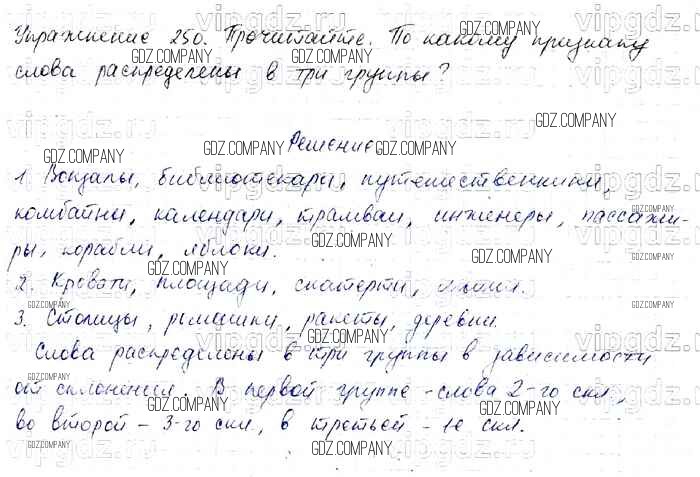 Упражнение 250. Прочитайте. По какому признаку
слова распределены в три группы?
Решение
1. Вокзалы, библиотекари, путешественники,
комбайны, календари, трамваи, инженеры, пассажи-
ры, корабли, яблоки.
2. Кровати, площади, скатерти,
3. Столицы, ромашки, ракеты, деревни.
Слова распределены в три группы в зависимости
от склонения. В первой группе - слова 2-го скл.,
во второй - 3-го скл., в третьей - 1е скл.
GDZ.COMPANY
vipgdz.ru